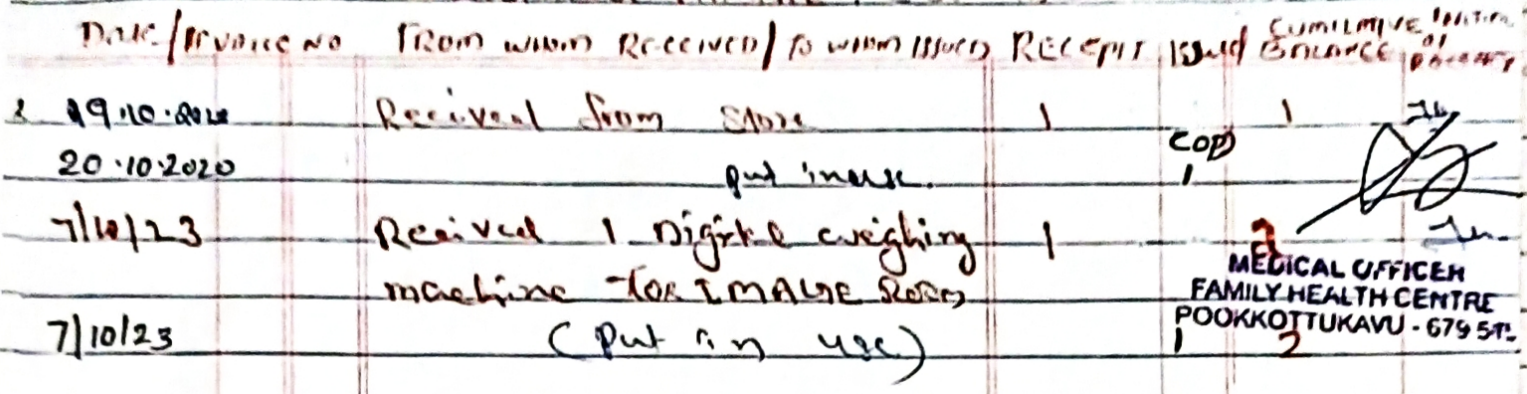 Date/Invoice No From whom Received/To whom issued Receipt Issued Cumilative Balance Initial of
19.10.2020 Received from Store 1 1
20.10.2020 put inuse. (OP) 1
7/10/23 Reeived 1 Digital weighing 1 2
machine for IMAGE Room
MEDICAL OFFICER
FAMILY HEALTH CENTRE
POOKKOTTUKAVU - 679
7/10/23 (Put in use) 1 2